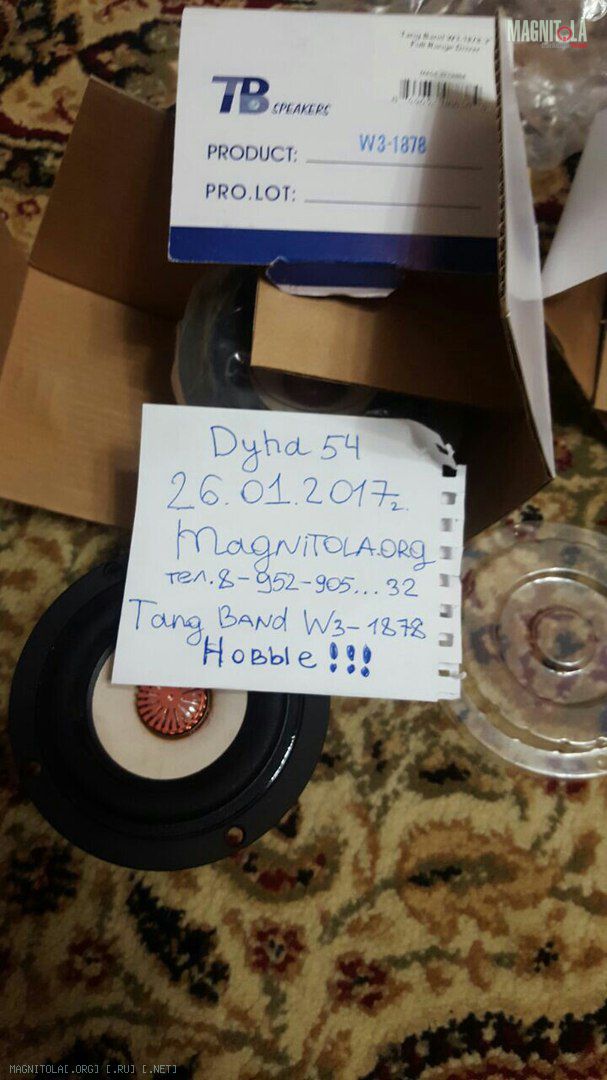 MAGNITOLA
Tang Band W3-1878
Full Range Driver
TB SPEAKERS
PRODUCT: W3-1878
PRO.LOT:
Dyha 54
26.01.2017г.
MAGNITOLA.ORG
тел. 8-952-905...32
Tang BAND W3-1878
Новые !!!
MAGNITOLA[.ORG] [.RU] [.NET]